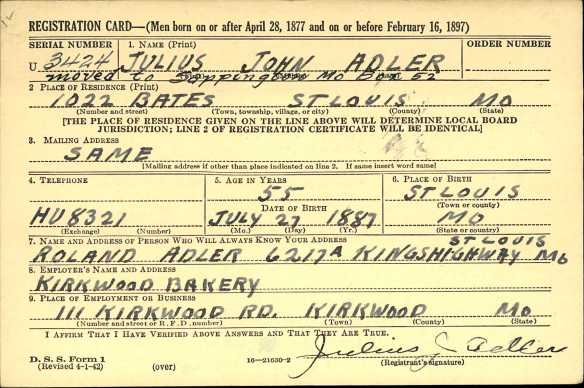 REGISTRATION CARD—(Men born on or after April 28, 1877 and on or before February 16, 1897)
SERIAL NUMBER 1. NAME (Print) ORDER NUMBER
U 3424 JULIUS JOHN ADLER
moved to Sappington Mo Box 52
2 PLACE OF RESIDENCE (Print)
1022 BATES ST LOUIS MO
(Number and street) (Town, township, village, or city) (County) (State)
[THE PLACE OF RESIDENCE GIVEN ON THE LINE ABOVE WILL DETERMINE LOCAL BOARD
JURISDICTION; LINE 2 OF REGISTRATION CERTIFICATE WILL BE IDENTICAL]
3. MAILING ADDRESS
SAME
[Mailing address if other than place indicated on line 2. If same insert word same]
4. TELEPHONE 5. AGE IN YEARS 6. PLACE OF BIRTH
55 ST LOUIS
DATE OF BIRTH (Town or county)
HU 8321 JULY 27 1887 MO
(Exchange) (Number) (Mo.) (Day) (Yr.) (State or country)
7. NAME AND ADDRESS OF PERSON WHO WILL ALWAYS KNOW YOUR ADDRESS ST LOUIS
ROLAND ADLER 6217A KINGSHIGHWAY MO
8. EMPLOYER'S NAME AND ADDRESS
KIRKWOOD BAKERY
9. PLACE OF EMPLOYMENT OR BUSINESS
111 KIRKWOOD RD. KIRKWOOD MO
(Number and street or R. F. D. number) (Town) (County) (State)
I AFFIRM THAT I HAVE VERIFIED ABOVE ANSWERS AND THAT THEY ARE TRUE.
Julius J Adler
D. S. S. Form 1
(Revised 4-1-42) (over) 16—21630-2 (Registrant's signature)